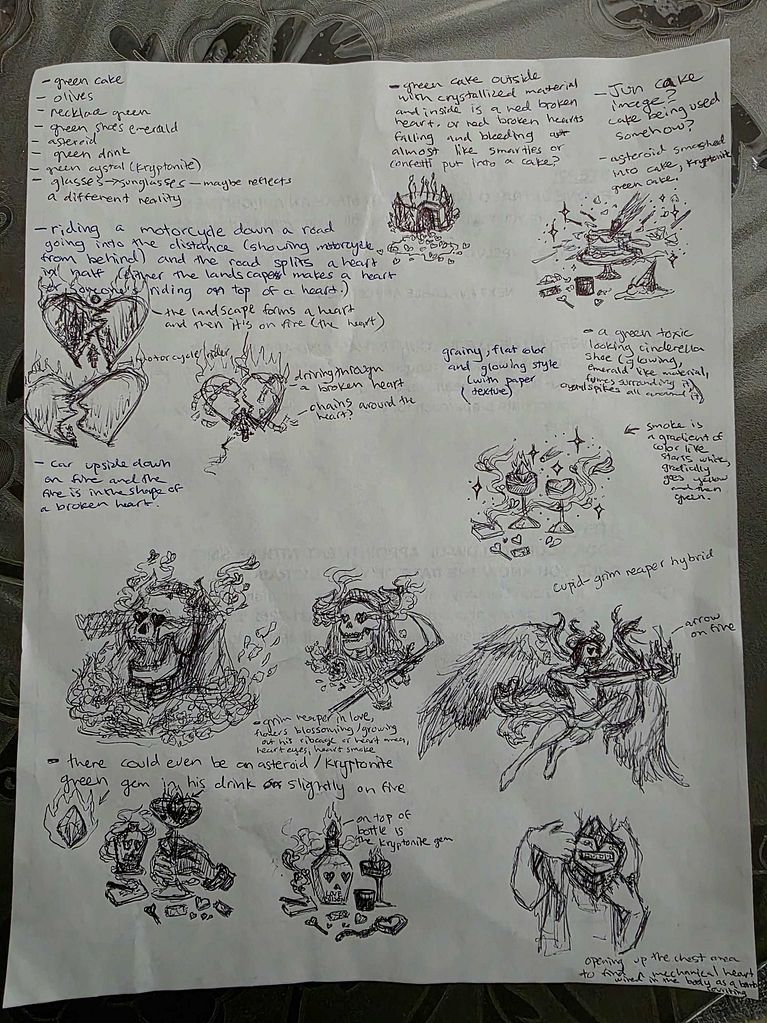 - green cake
- olives
- necklace green
- green shoes emerald
- asteroid
- green drink
- green cystal (kryptonite)
- glasses → sunglasses — maybe reflects
a different reality
- green cake outside
with crystallized material
and inside is a red broken
heart. or red broken hearts
falling and bleeding out
almost like smarties or
confetti put into a cake?
- Jun cake
image?
cake being used
somehow?
- asteroid smashed
into cake, kryptonite
green cake.
- riding a motorcycle down a road
going into the distance (showing motorcycle
from behind) and the road splits a heart
in half (either the landscape makes a heart
or someone's riding on top of a heart.)
- the landscape forms a heart
and then it's on fire (the heart)
motorcycle rider
driving through
a broken heart
chains around the
heart?
grainy, flat color
and glowing style
(with paper
texture)
- a green toxic
looking cinderella
shoe (glowing,
emerald like material,
fumes surrounding it,
spikes all around it)
smoke is
a gradient of
color like
starts white,
gradically
goes yellow
and then
green.
- car upside down
on fire and the
fire is in the shape of
a broken heart.
cupid-grim reaper hybrid
arrow
on fire
- grim reaper in love,
flowers blossoming/growing
out his ribcage or heart area,
heart eyes, heart smoke
- there could even be an asteroid/kryptonite
green gem in his drink slightly on fire
- on top of
bottle is
the kryptonite gem
LOVE
opening up the chest area
to find mechanical heart
wired in the body as a bomb